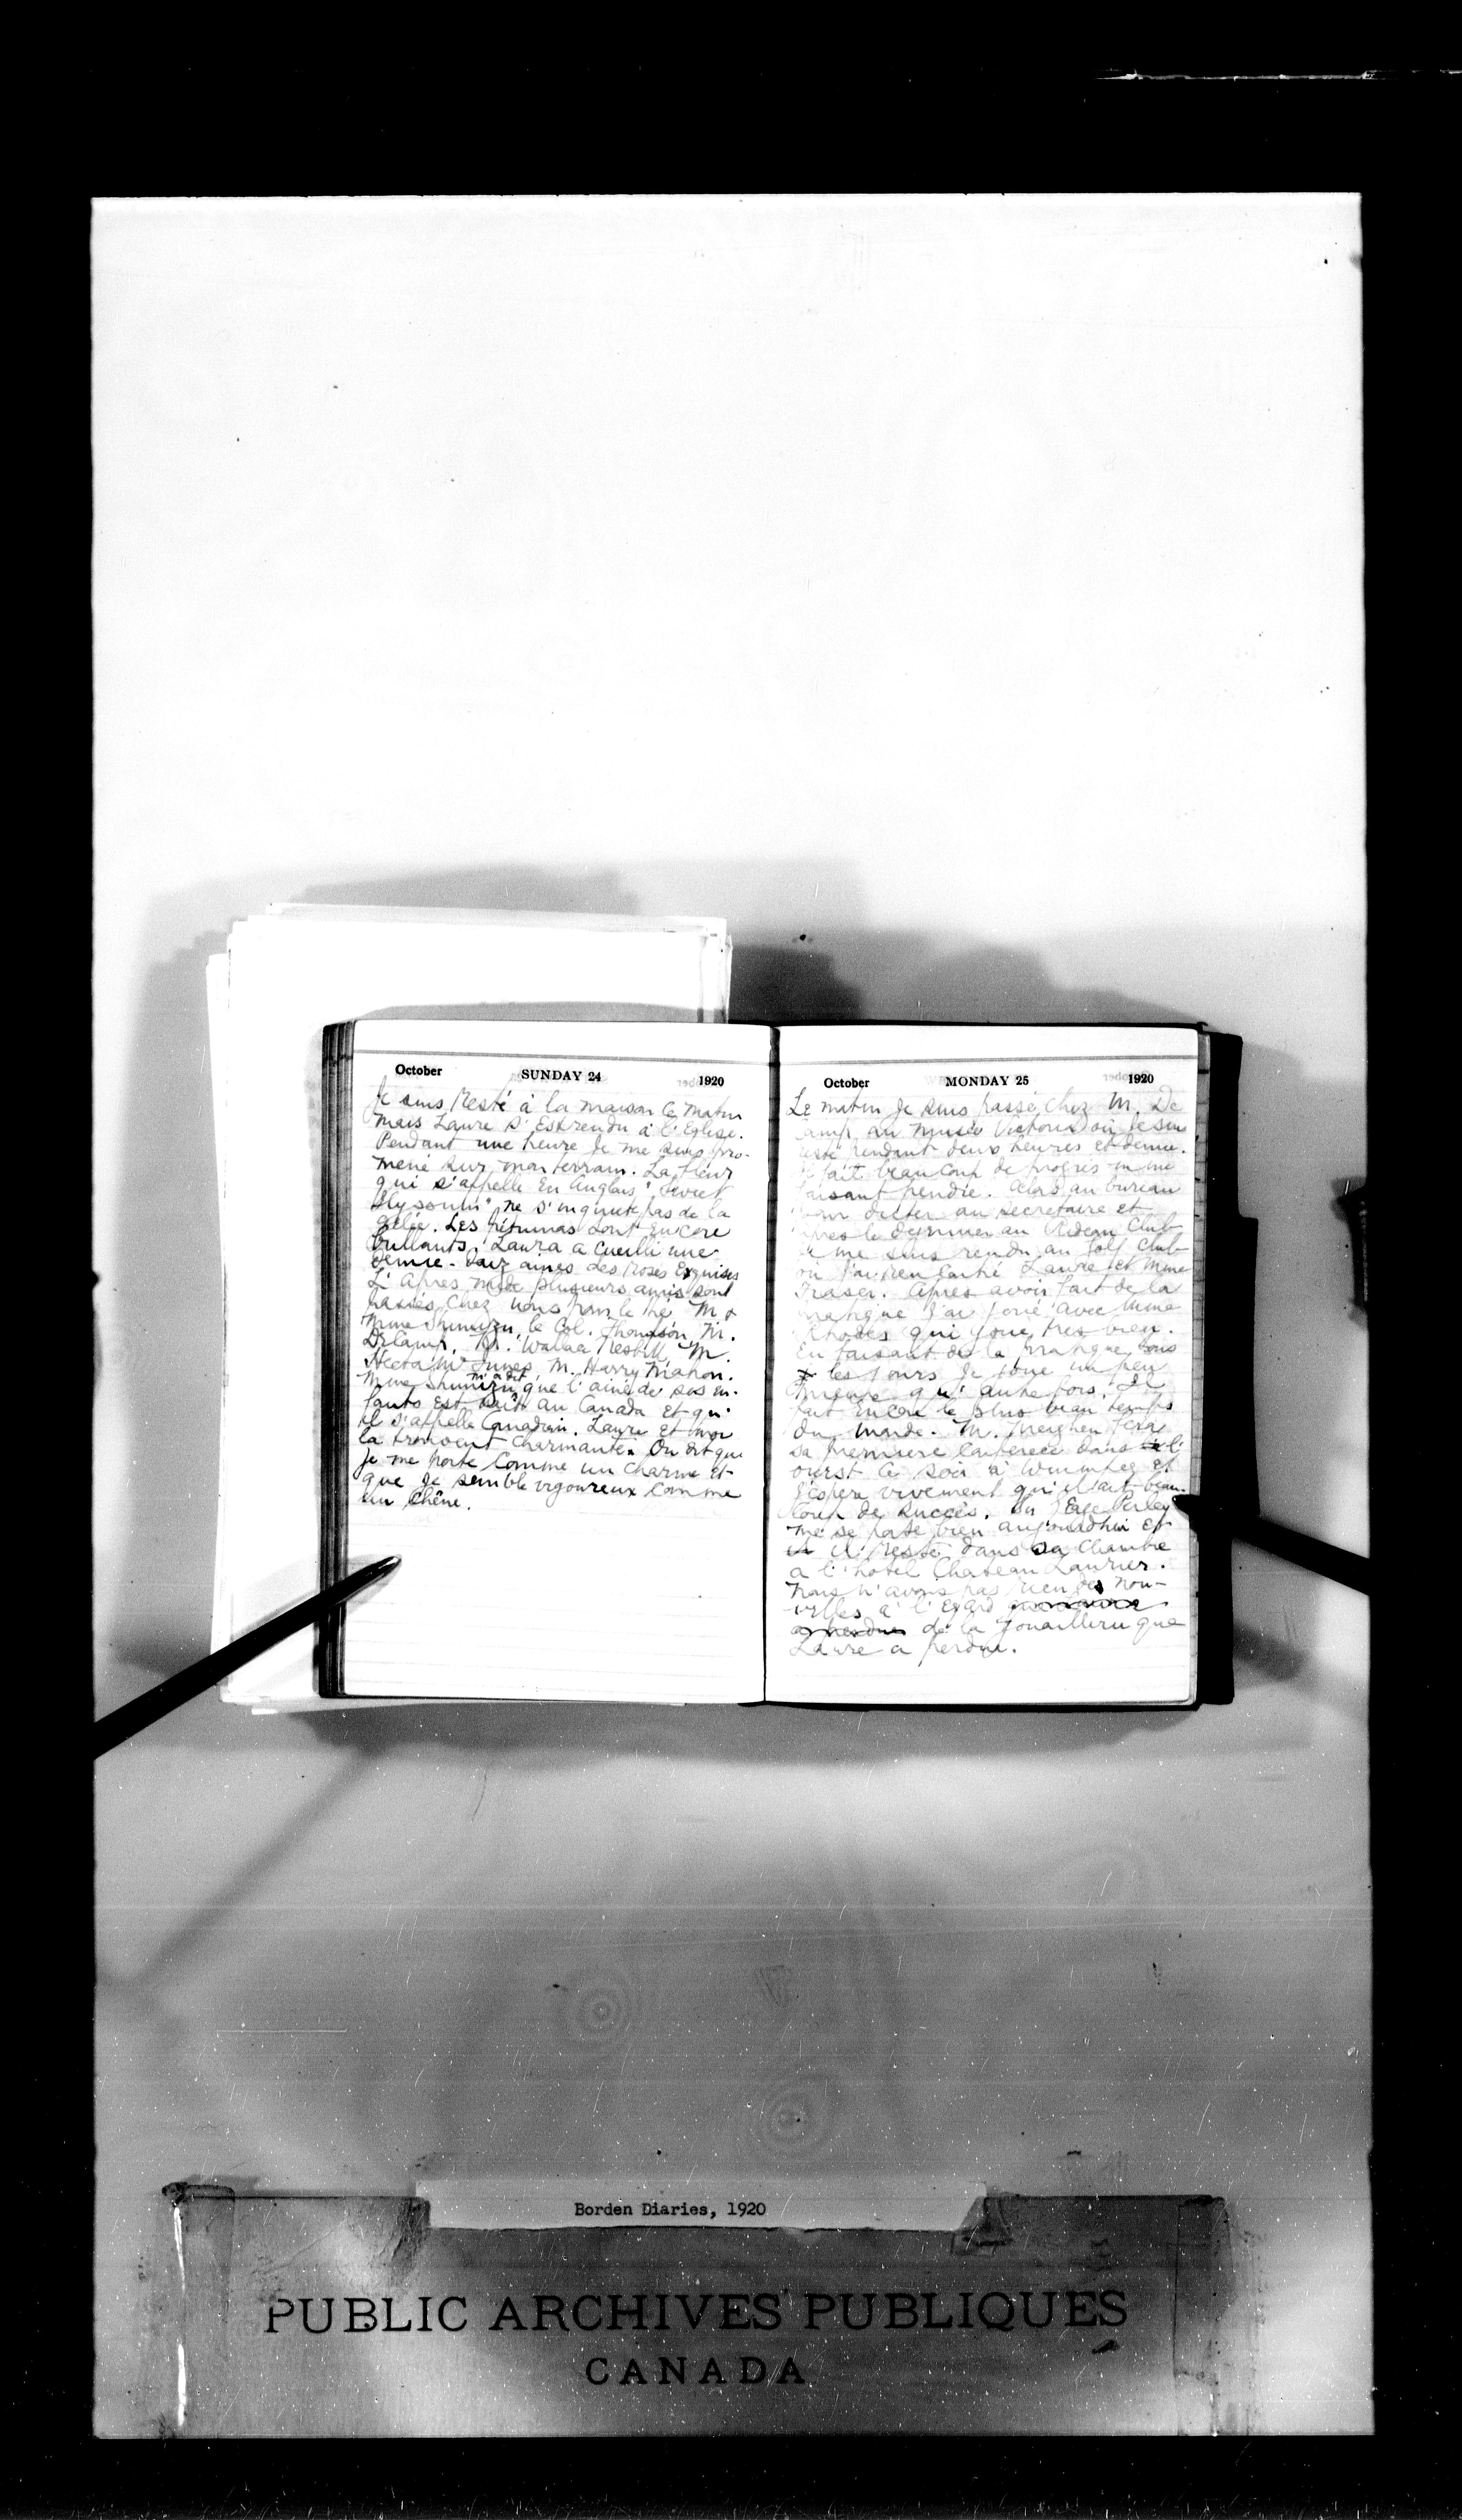 October SUNDAY 24 1920
Je suis resté à la maison ce matin
mais Laure s'est rendu à l'Eglise.
Pendant une heure je me suis pro-
mené sur mon terrain. La fleur
qui s'appelle en Anglais "Sweet
Alyssum" ne s'inquiete pas de la
gelée. Les petunias sont encore
brillants. Laura a cueilli une
demie-douzaines des roses exquises
L'après midi plusieurs amis sont
passés chez nous pour le thé M &
Mme Shimizu, le Col. Thompson, M.
Delamp, M. Wallace Nesbitt, M.
Hector McInnes, M. Harry Mahon.
Mme Shimizu m'a dit que l'ainé de ses en-
fants est naît au Canada et qu'
il s'appelle Canadian. Laure et moi
la trouvent charmante. On dit que
je me porte comme un charme et
que je semble vigoureux comme
un chêne.
October MONDAY 25 1920
Le matin je suis passé chez M. De
Camp au musée Victoria où je suis
resté pendant deux heures et demie.
fait beaucoup de progres en me
faisant pendre. Alors au bureau
pour dicter au secretaire et
apres le dejeuner au Rideau Club
je me suis rendu au Golf Club
où j'ai rencontré Laure et Mme
Fraser. Après avoir fait de la
pratique j'ai joué avec Mme
Rhodes qui joue tres bien.
En faisant de la pratique tous
les jours je joue un peu
mieux qu'autrefois. Il
fait encore le plus beau temps
du monde. M. Meighen fera
sa premiere conference dans l'
ouest ce soir à Winnipeg et
j'espere vivement qu'il ait beau-
coup de succès. Sir George Perley
ne se porte bien aujourdhui et
il reste dans sa chambre
a l'hotel Chateau Laurier.
Nous n'avons pas rien des nou-
velles à l'egard
de la jouaillerie que
Laure a perdue.
Borden Diaries, 1920
PUBLIC ARCHIVES PUBLIQUES
CANADA